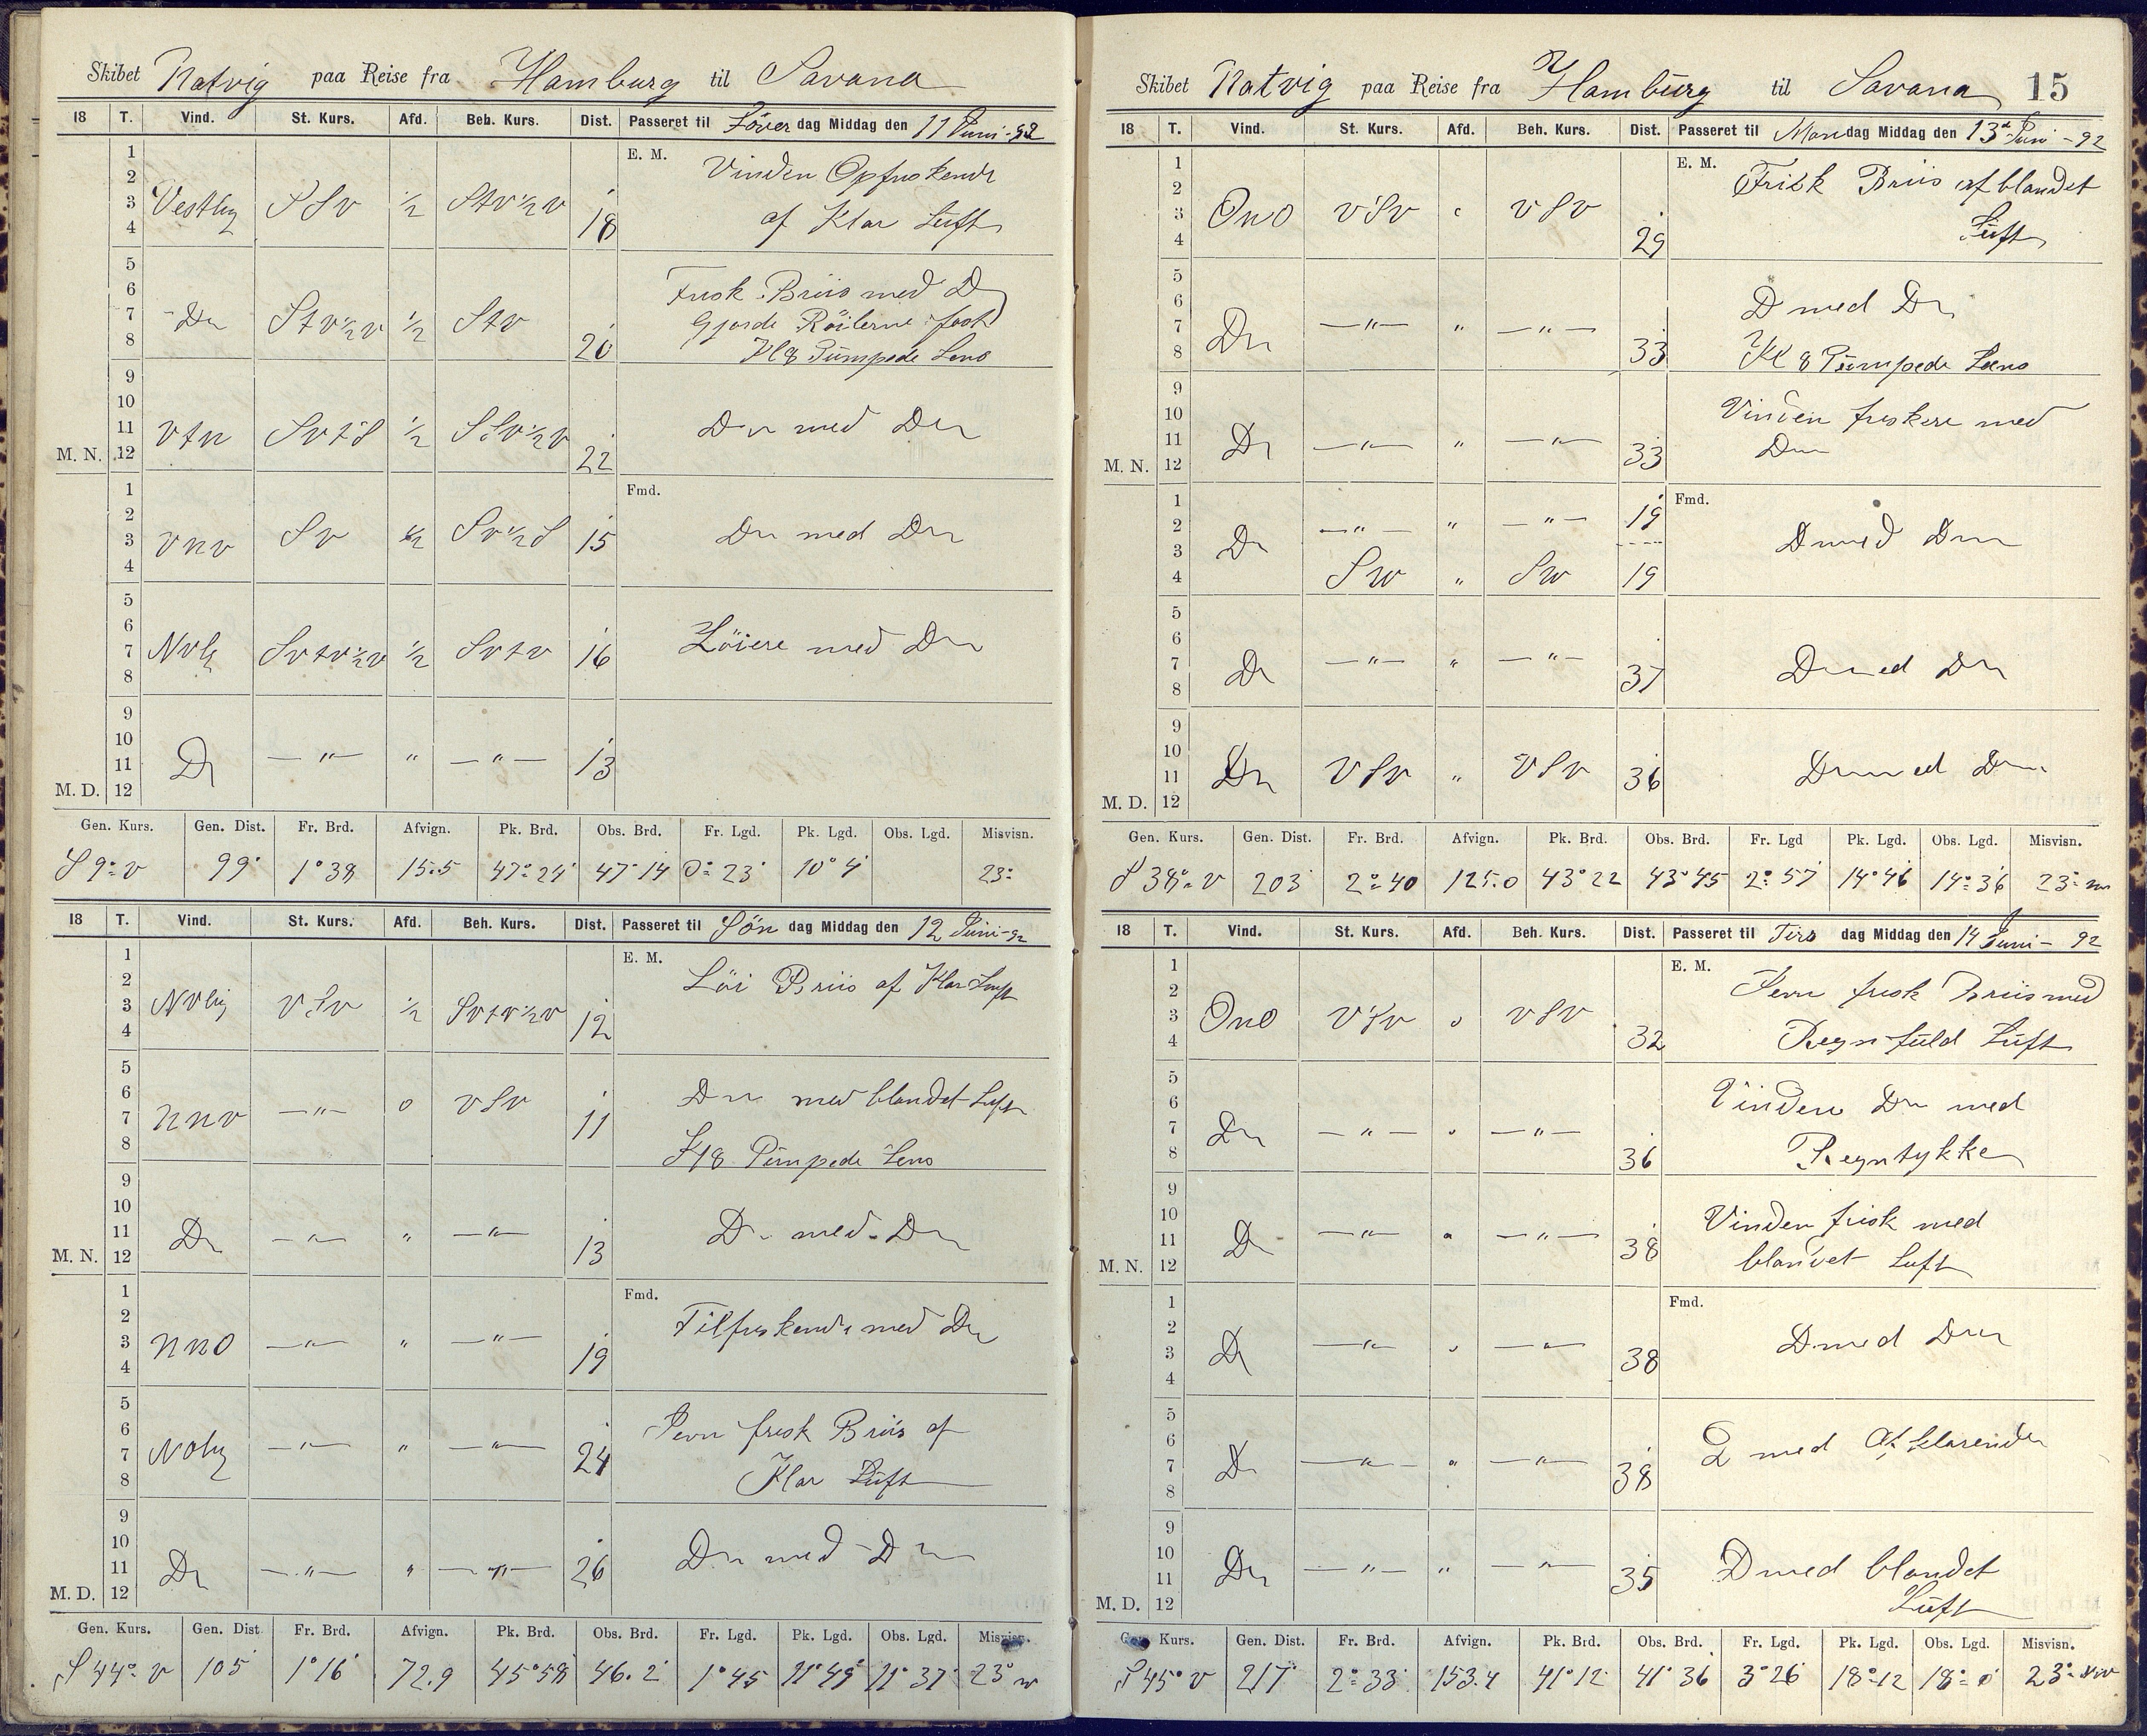 Skibet Natvig paa Reise fra Hamburg til Savana
18 T. Vind. St. Kurs. Afd. Beh. Kurs. Dist. Passeret til Löver dag Middag den 11 Juni-92
1 E. M. Vinden Opfriskende
2
3 Vestlig SSv ½ Stv½v 18 af Klar Luft
4
5
6 Frisk Briis med Do
7 Do Stv½v ½ Stv 20 Gjorde Röilerne fast
8 Kl 8 Pumpede Lens
9
10
11 vtn Svts ½ SSv½v 22 Do med Do
M. N. 12
1 Fmd.
2
3 vnv Sv ½ Sv½S 15 Do med Do
4
5
6
7 Nvlg Svtv½v ½ Svtv 16 Löiere med Do
8
9
10
11 Do —"— " —"— 13
M. D. 12
Gen. Kurs. Gen. Dist. Fr. Brd. Afvign. Pk. Brd. Obs. Brd. Fr. Lgd. Pk. Lgd. Obs. Lgd. Misvisn.
S 9° v 99' 1°38 15.5 47°24' 47°14 0°23' 10°4' 23°
18 T. Vind. St. Kurs. Afd. Beh. Kurs. Dist. Passeret til Sön dag Middag den 12 Juni-92
1 E. M. Löi Briis af Klar Luft
2
3 Nvlig vSv ½ Svtv½v 12
4
5
6 Do med blandet Luft
7 nnv —"— o vSv 11
8 Kl 8 Pumpede Lens
9
10
11 Do —"— " —"— 13 Do med Do
M. N. 12
1 Fmd. Tilfriskende med Do
2
3 nnO —"— " —"— 19
4
5
6 Jevn frisk Briis af
7 Nolig —"— " —"— 24
8 Klar Luft
9
10
11 Do —"— " —"— 26 Do med Do
M. D. 12
Gen. Kurs. Gen. Dist Fr. Brd. Afvign. Pk. Brd. Obs. Brd. Fr. Lgd. Pk. Lgd. Obs. Lgd. Misvisn.
S 44° v 105 1°16' 72.9 45°58' 46.2' 1°45 11°49' 11°37' 23° w
Skibet Natvig paa Reise fra Hamburg til Savana 15
18 T. Vind. St. Kurs. Afd. Beh. Kurs. Dist. Passeret til Mandag Middag den 13d Juni-92
1 E. M. Frisk Briis af blandet
2
3 OnO vSv o vSv 29 Luft
4
5
6 D med Do
7 Do —"— " —"— 33
8 Kl 8 Pumpede Læns
9
10 Vinden friskere med
11 Do —"— " —"— 33 Do
M. N. 12
1 Fmd.
2 —"— " —"— 19
3 Do D med Do
4 SW " SW 19
5
6
7 Do —"— " —"— 37 D med Do
8
9
10
11 Do vSv " vSv 36 D med Do
M. D. 12
Gen. Kurs. Gen. Dist. Fr. Brd. Afvign. Pk. Brd. Obs. Brd. Fr. Lgd Pk. Lgd. Obs. Lgd. Misvisn.
S 38° v 203 2°40 125.0 43°22 43°45 2°57 14°46 14°36 23°
18 T. Vind. St. Kurs. Afd. Beh. Kurs. Dist. Passeret til Tirs dag Middag den 14 Juni - 92
1 E. M. Jevn frisk Briis med
2
3 OnO vSv o vSv 32 Regnfuld Luft
4
5
6 Vinden Do med
7 Do —"— " —"— 36
8 Regntykke
9
10 Vinden frisk med
11 Do —"— " —"— 38
M. N. 12 blandet Luft
1 Fmd.
2 D med Do
3 Do —"— " —"— 38
4
5
6 D med Afklarende
7 Do —"— " —"— 38
8
9
10 D med blandet
11 Do —"— " —"— 35
M. D. 12 Luft
Kurs. Gen. Dist. Fr. Brd. Afvign. Pk. Brd. Obs. Brd. Fr. Lgd. Pk. Lgd. Obs. Lgd. Misvisn.
S 45° v 217' 2°33' 153.4 41°12' 41°36 3°26' 18°12 18°0' 23°